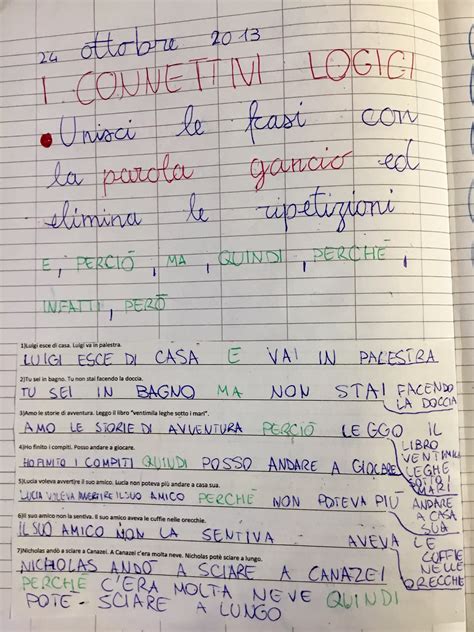 24 ottobre 2013
I CONNETTIVI LOGICI
• Unisci le frasi con
la parola gancio ed
elimina le ripetizioni
E, PERCIÒ, MA, QUINDI, PERCHÉ,
INFATTI, PERÒ
1)Luigi esce di casa. Luigi va in palestra.
LUIGI ESCE DI CASA E VAI IN PALESTRA
2)Tu sei in bagno. Tu non stai facendo la doccia.
TU SEI IN BAGNO MA NON STAI FACENDO
LA DOCCIA
3)Amo le storie di avventura. Leggo il libro "ventimila leghe sotto i mari".
AMO LE STORIE DI AVVENTURA PERCIÒ LEGGO IL
LIBRO
VENTIMILA
LEGHE
SOTTO I
MARI
4)Ho finito i compiti. Posso andare a giocare.
HO FINITO I COMPITI QUINDI POSSO ANDARE A GIOCARE
5)Lucia voleva avvertire il suo amico. Lucia non poteva più andare a casa sua.
LUCIA VOLEVA AVVERTIRE IL SUO AMICO PERCHÉ NON POTEVA PIÙ ANDARE
A CASA
SUA
6)Il suo amico non la sentiva. Il suo amico aveva le cuffie nelle orecchie.
IL SUO AMICO NON LA SENTIVA AVEVA LE
CUFFIE
NELLE
ORECCHE
7)Nicholas andò a sciare a Canazei. A Canazei c'era molta neve. Nicholas potè sciare a lungo.
NICHOLAS ANDÒ A SCIARE A CANAZEI
PERCHÉ C'ERA MOLTA NEVE QUINDI
POTÈ SCIARE A LUNGO